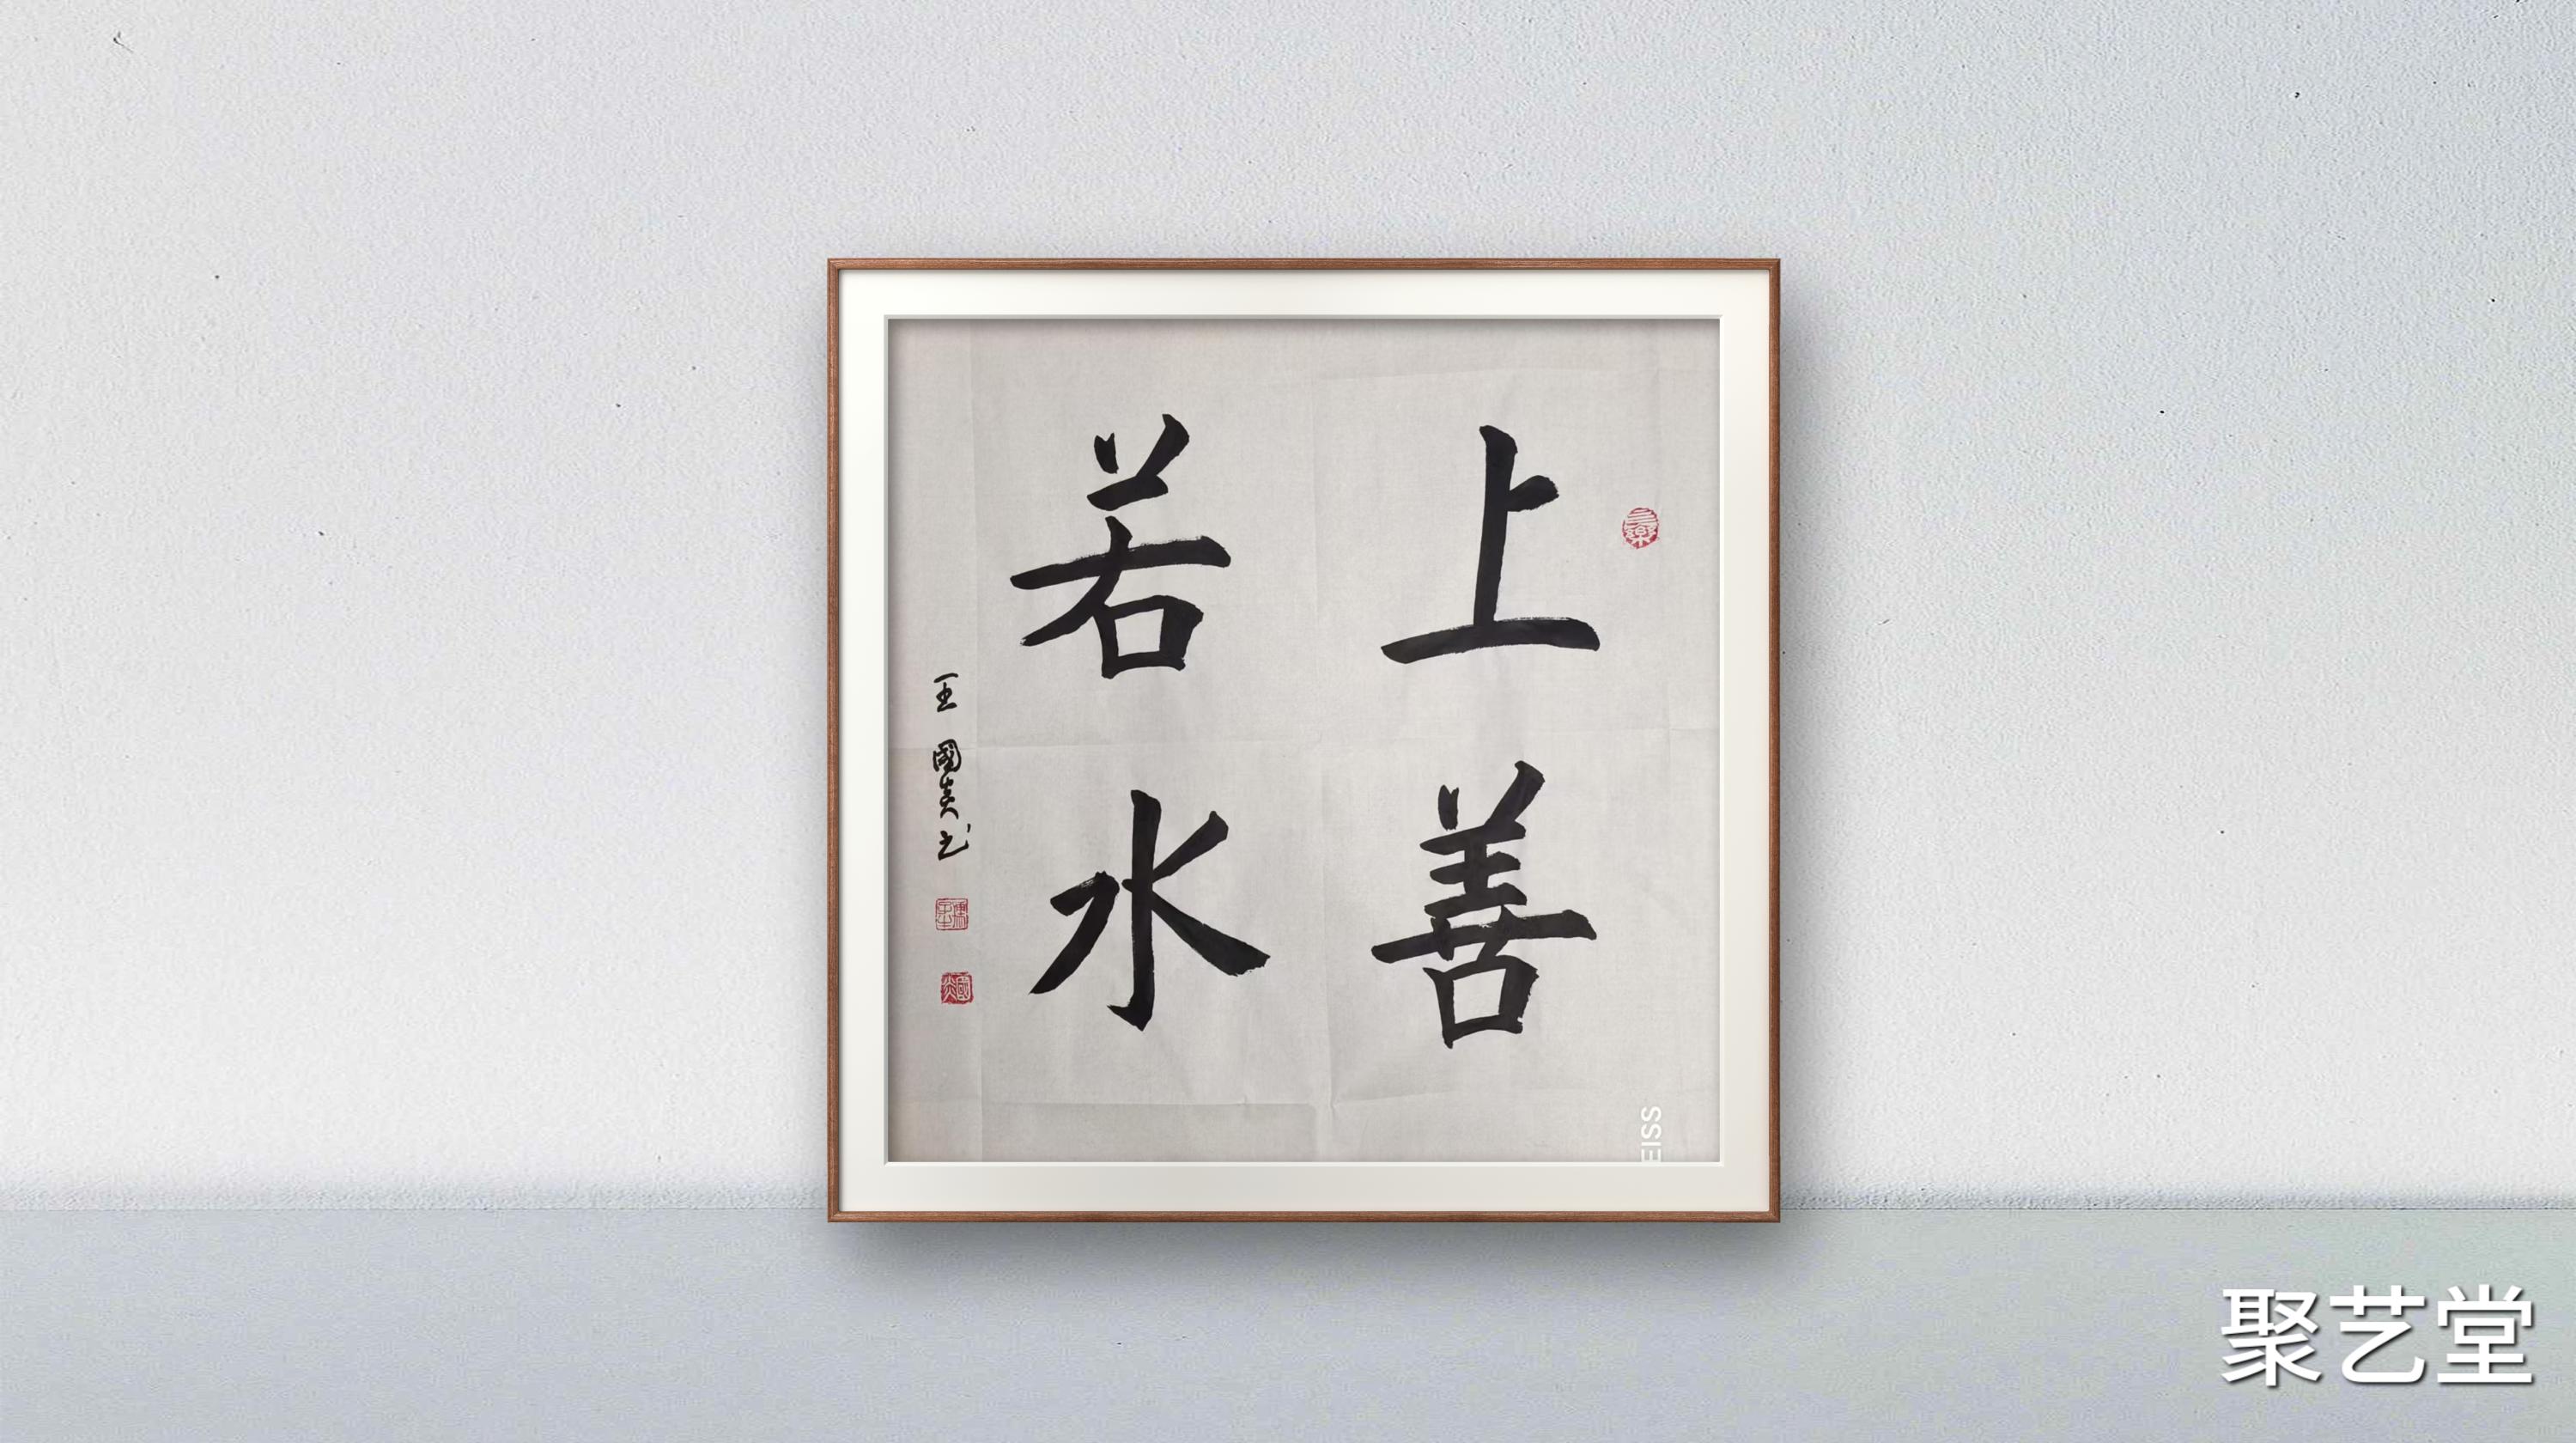 上善
若水
王國炎书
EISS
聚艺堂